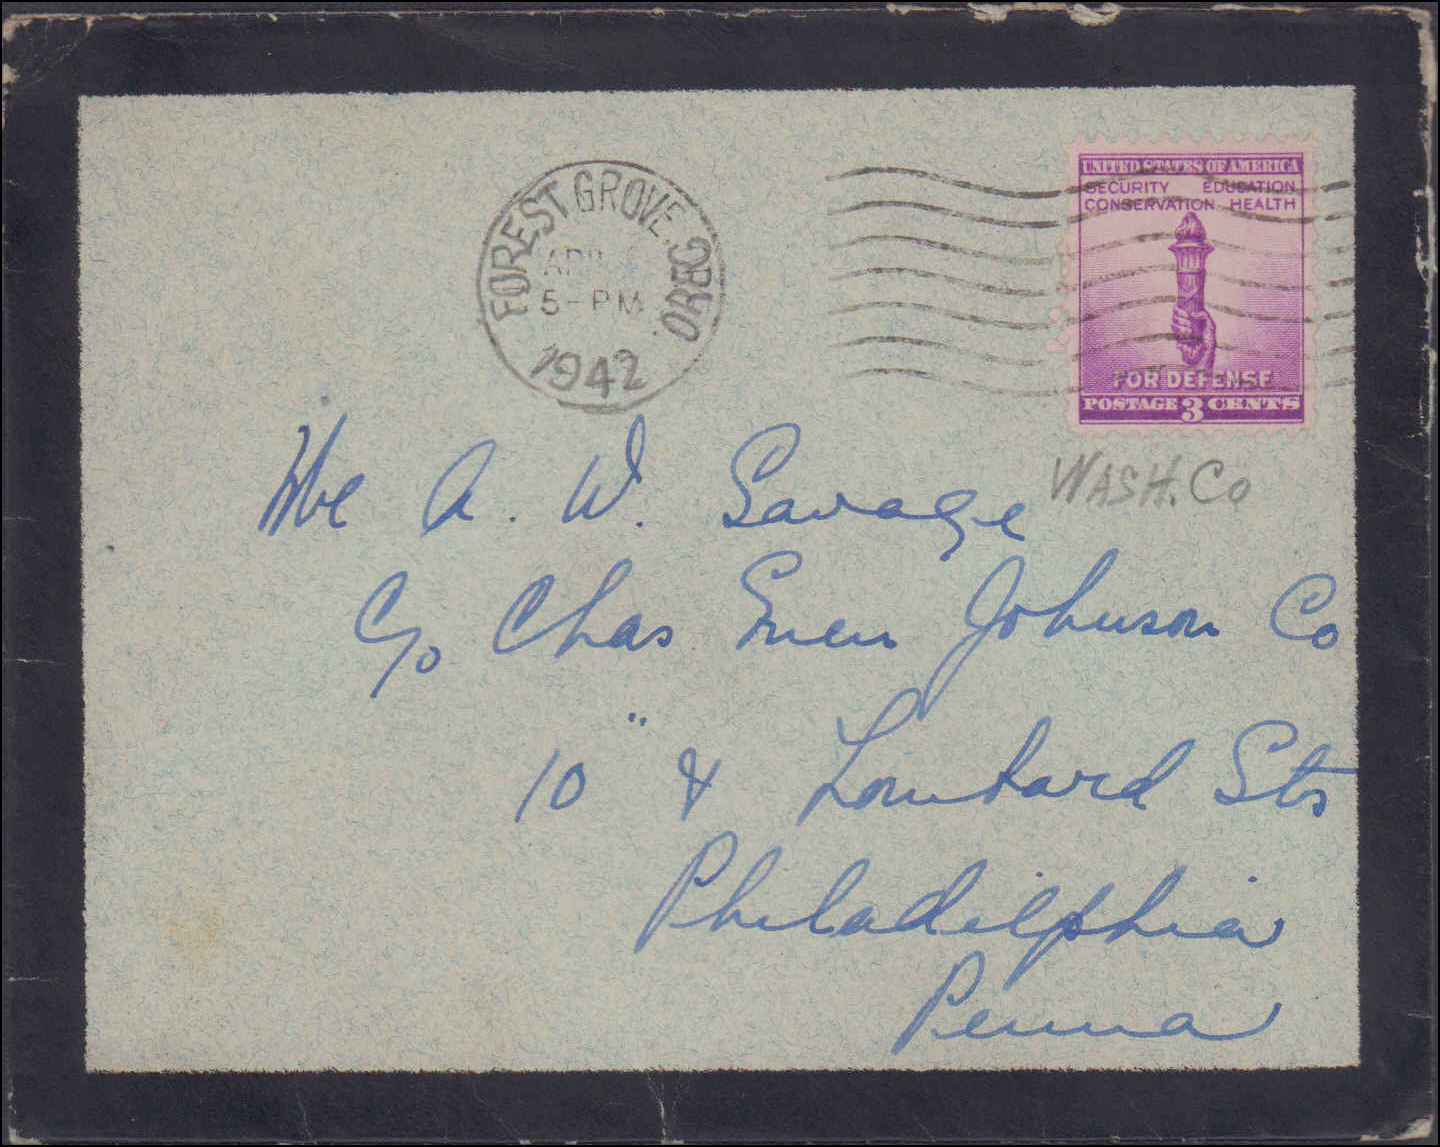 FOREST GROVE, OREG
APR
5-PM
1942
UNITED STATES OF AMERICA
SECURITY EDUCATION
CONSERVATION HEALTH
FOR DEFENSE
POSTAGE 3 CENTS
WASH. Co
A. W. Savage
C/o Chas Eneu Johnson Co
10" & Lombard Sts
Philadelphia
Penna